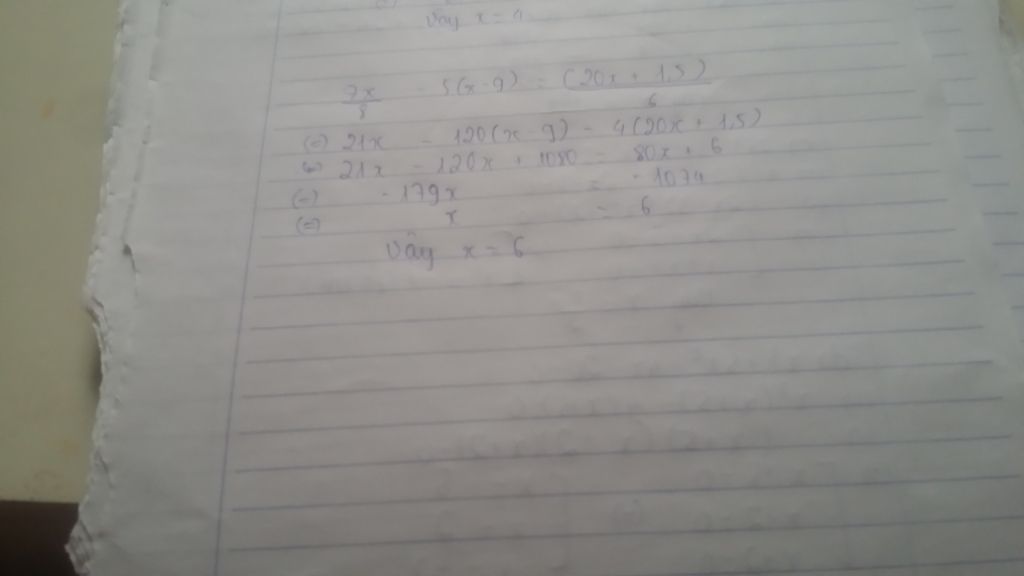 Vậy x = 4
7x/8 - 5(x-9) = (20x + 1,5)/6
(=) 21x - 120(x-9) = 4(20x + 1,5)
(=) 21x - 120x + 1080 = 80x + 6
(=) -179x = -1074
(=) x = 6
Vậy x = 6